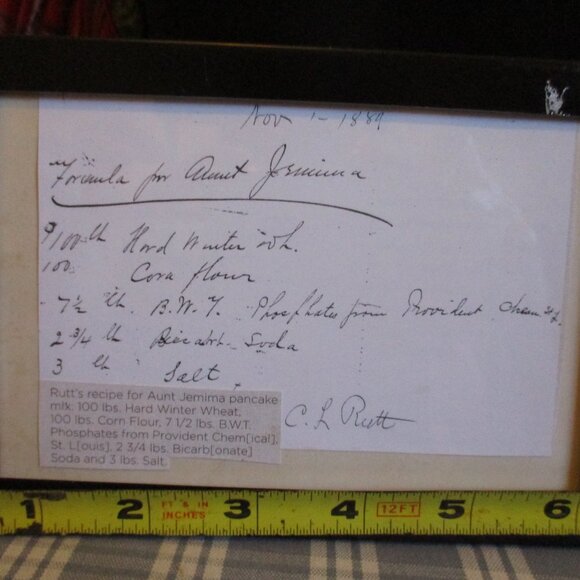 Nov 1 - 1889
Formula for Aunt Jemima
100 lb Hard Winter Wh.
100 Corn flour
7 1/2 lb. B.W.T. Phosphates from Provident Chem St L.
2 3/4 lb Bicarb. Soda
3 lb Salt
C. L Rutt
Rutt's recipe for Aunt Jemima pancake
mik: 100 lbs. Hard Winter Wheat,
100 lbs. Corn Flour, 7 1/2 lbs. B.W.T.
Phosphates from Provident Chem[ical],
St. L[ouis], 2 3/4 lbs. Bicarb[onate]
Soda and 3 lbs. Salt.
1 2 FT & IN INCHES 3 4 12FT 5 6